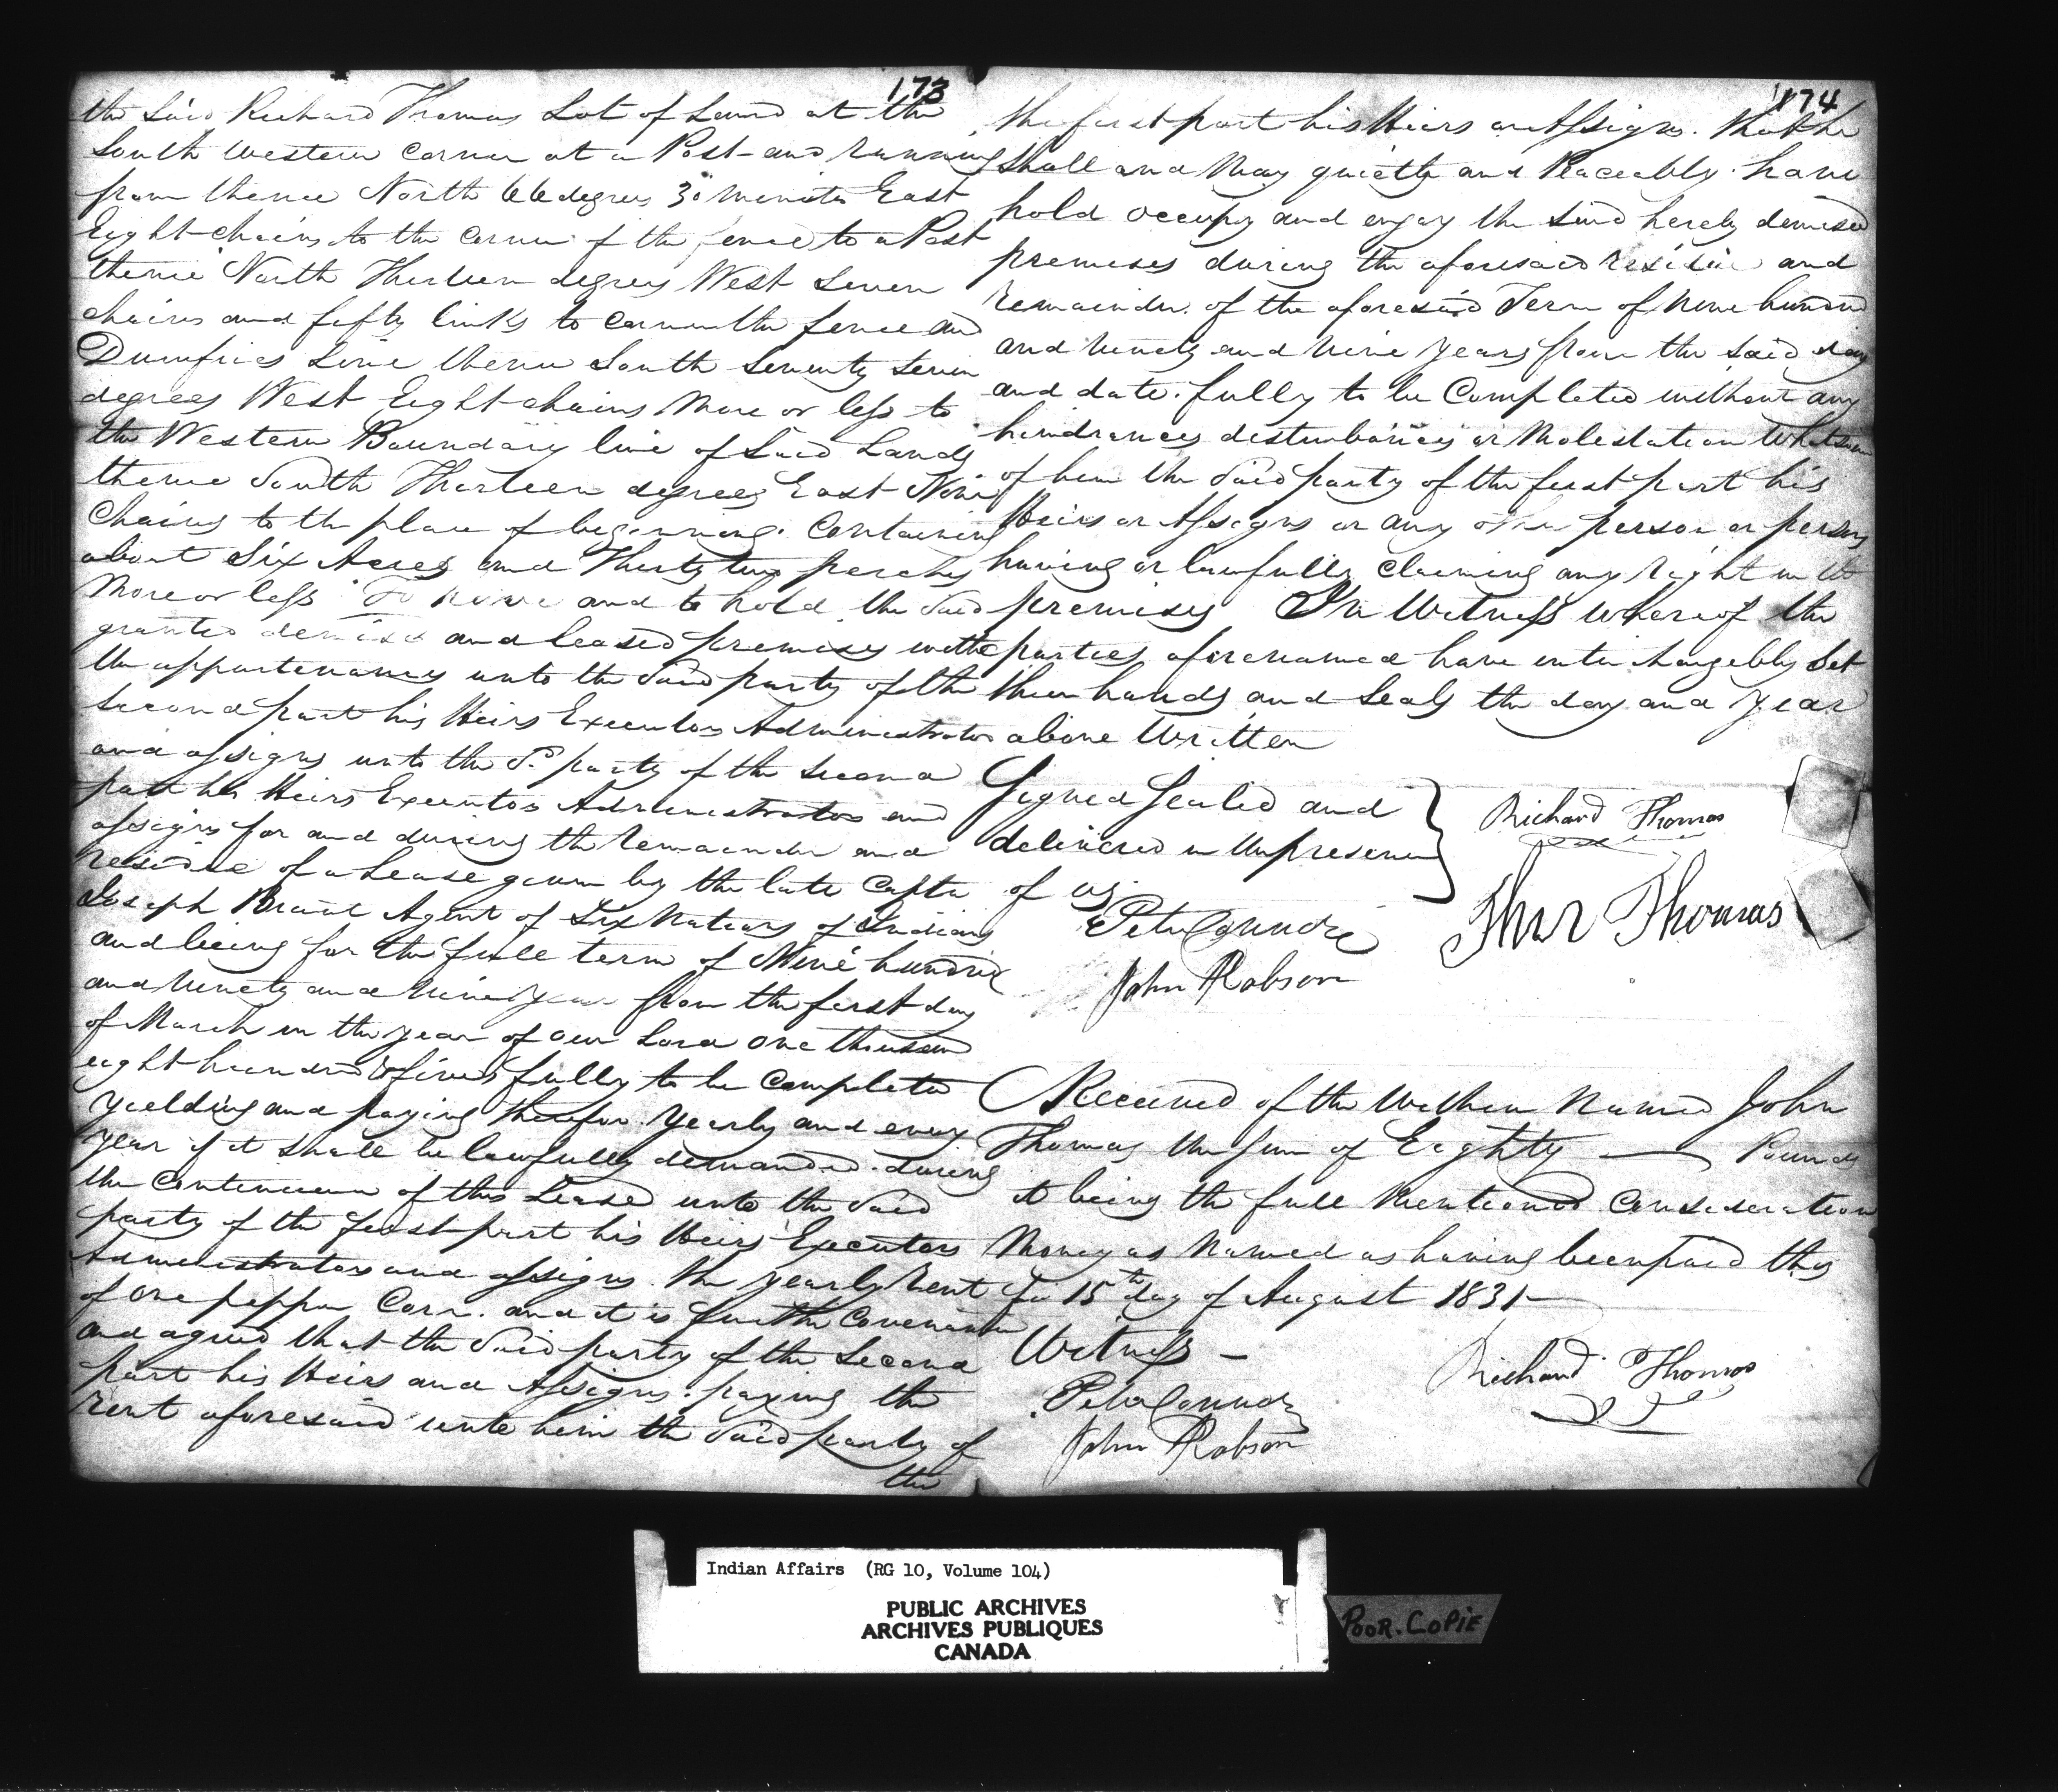 173
the Said Richard Thomas Lot of Land at the
South Western Corner at a Post and running
from thence North 66 degrees 30 minutes East
Eight chains to the Corner of the fence to a Post
thence North Thirteen degrees West Seven
chains and fifty links to Corner the fence and
Dumfries Line thence South Seventy Seven
degrees West Eight chains More or less to
the Western Boundary line of Said Lands
thence South Thirteen degrees East Nine
Chains to the place of beginning. Containing
about Six Acres and Thirty two perches
More or less To have and to hold the Said
granted demised and leased premises with
the appurtenances unto the Said party of the
Second part his Heirs Executors Administrators
and assigns unto the Sd party of the Second
part his Heirs Executors Administrators and
assigns for and during the Remainder and
residue of a Lease given by the late Captn
Joseph Brant Agent of Six Nations of Indians
and being for the full term of Nine hundred
and Ninety and Nine Years from the first day
of March in the year of our Lord One thousand
eight hundred & five fully to be Completed
Yielding and paying therefor Yearly and every
Year if it shall be lawfully demanded during
the Continuance of this Lease unto the Said
party of the first part his Heirs Executors
Administrators and assigns. the yearly Rent
of One pepper Corn. and it is further Covenanted
and agreed that the Said party of the Second
part his Heirs and Assigns. paying the
Rent aforesaid unto him the Said party of
the
174
the first part his Heirs or Assigns. that he
Shall and May quietly and Peaceably. have
hold occupy and enjoy the Said hereby demised
premises during the aforesaid residue and
Remainder of the aforesaid Term of Nine hundred
and Ninety and Nine Years from the Said day
and date. fully to be Completed without any
hindrances disturbances or Molestation Whatsoever
of him the Said party of the first part his
Heirs or Assigns or any other person or persons
having or lawfully Claiming any right in the
premises In Witness whereof the
parties aforenamed have interchangebly Set
their hands and Seals the day and Year
above Written
Signed Sealed and
delivered in the presence
of us
Peter
John Robson
Richard Thomas
Thomas
Received of the Within Named John
Thomas the Sum of Eighty Pounds
it being the full Mentioned Consideration
Money as Named as having been paid this
15th day of August 1831
Witness
Peter
John Robson
Richard Thomas
Indian Affairs (RG 10, Volume 104)
PUBLIC ARCHIVES
ARCHIVES PUBLIQUES
CANADA
POOR. COPIE